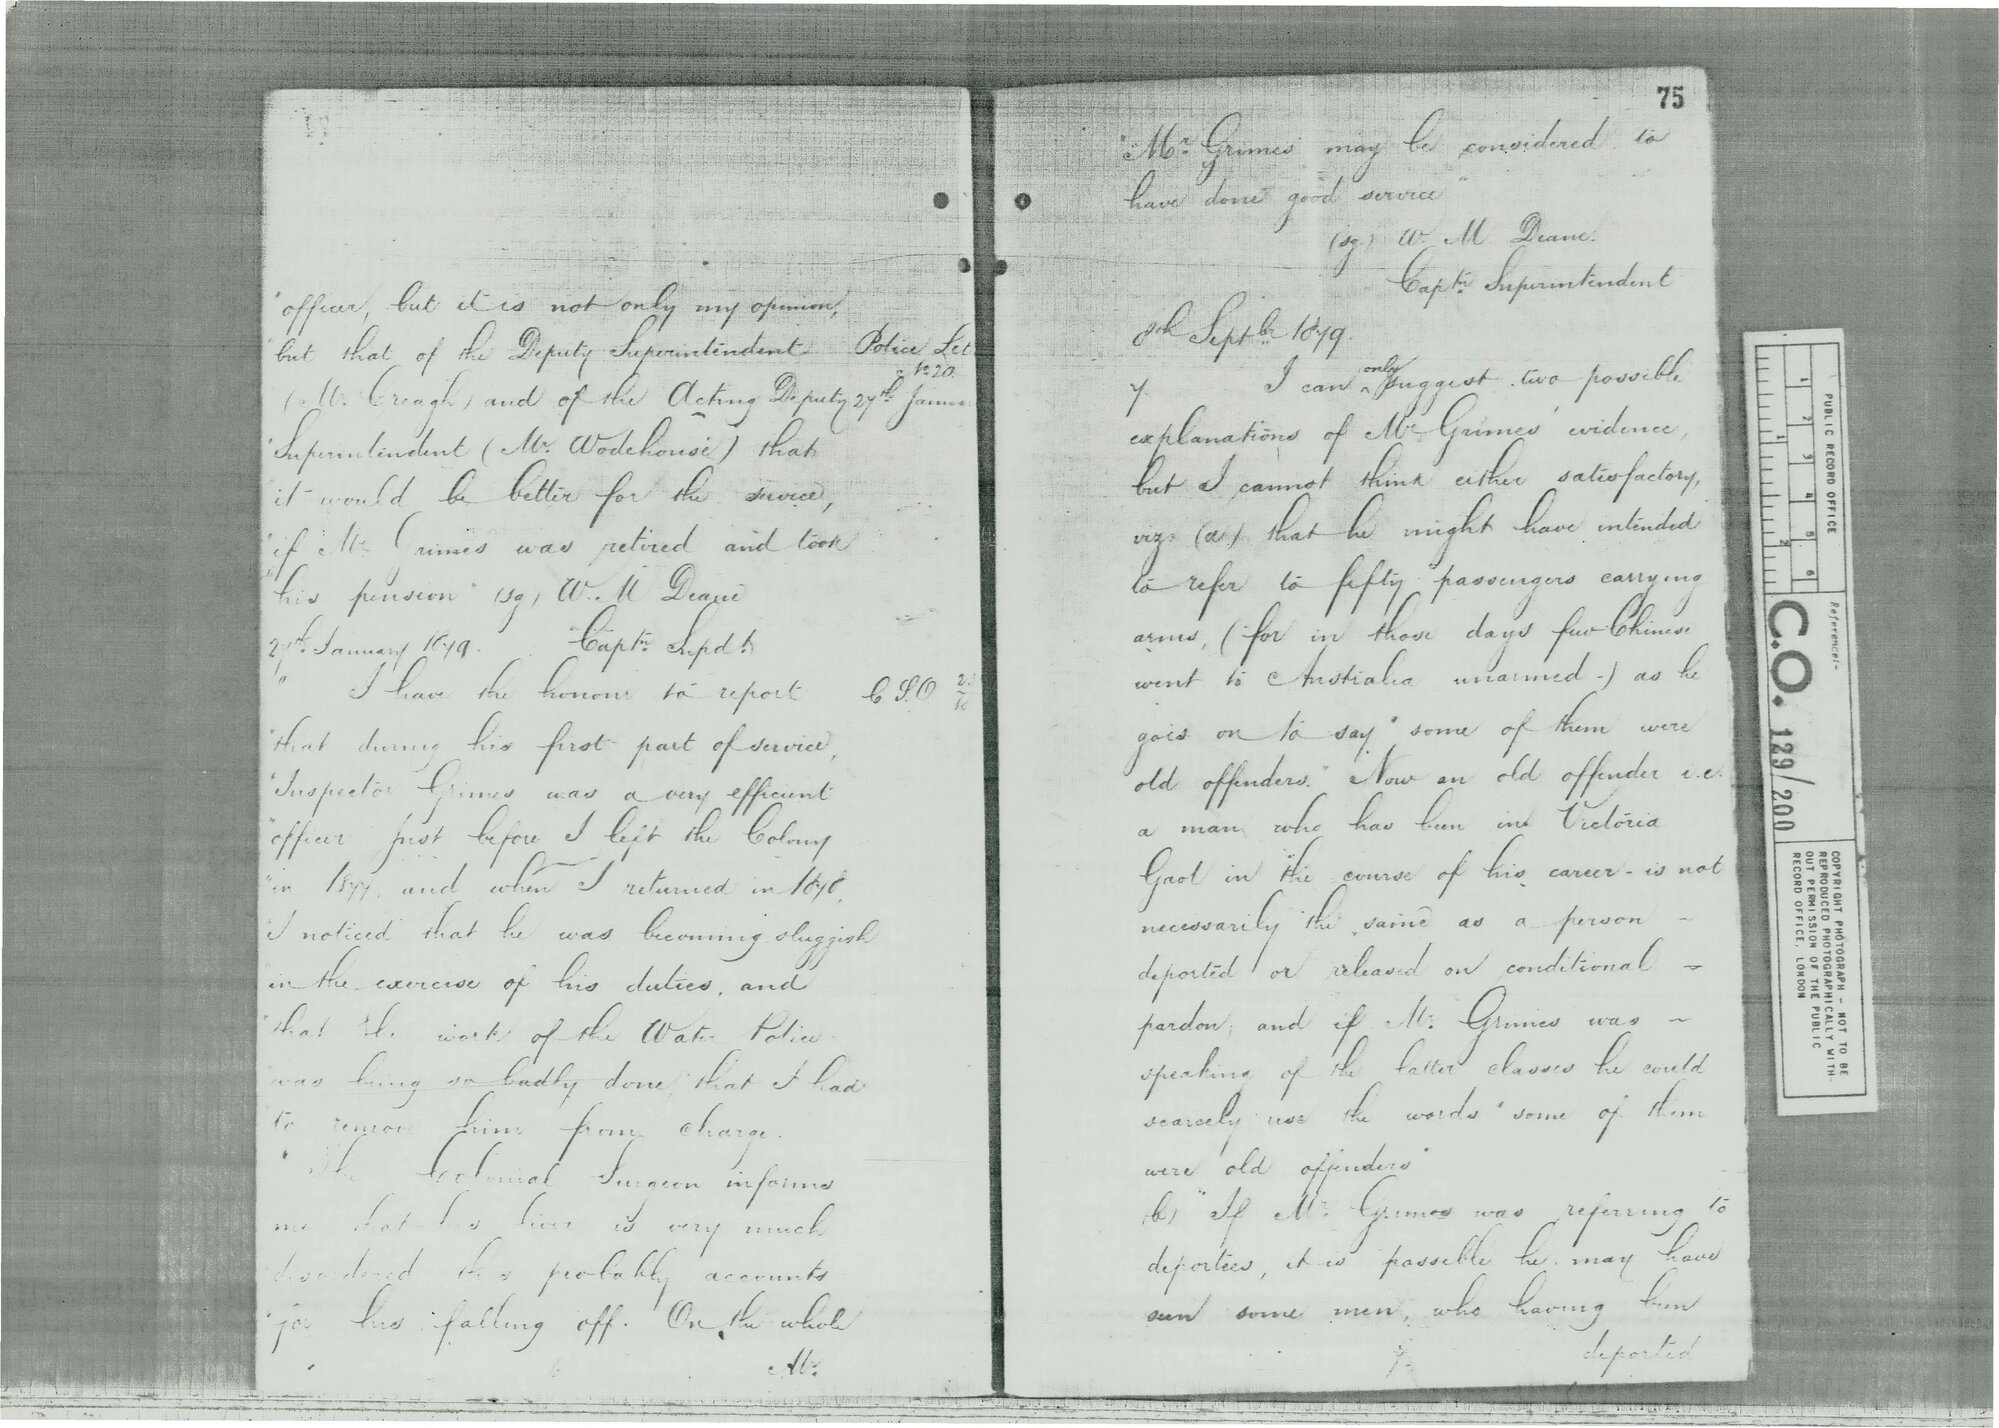 "officer, but it is not only my opinion,
"but that of the Deputy Superintendent
(Mr. Creagh) and of the Acting Deputy
"Superintendent (Mr. Wodehouse) that
"it would be better for the service,
"if Mr. Grimes was retired and took
"his pension" (sg) W. M Deane
27th January 1879. Captn Supdt
" I have the honour to report
"that during his first part of service,
"Inspector Grimes was a very efficient
"officer Just before I left the Colony
"in 1877, and when I returned in 1878,
"I noticed that he was becoming sluggish
"in the exercise of his duties, and
"that the work of the Water Police
was being so badly done, that I had
to remove him from charge.
"The Colonial Surgeon informs
me that his liver is very much
disordered this probably accounts
"for his falling off. On the whole
Mr.
Police Let
No 20
27th Janua
C S.O
75
"Mr. Grimes may be considered to
have done good service"
(sg) W. M Deane.
Captn Superintendent
8th Septbr 1879.
7. I can only suggest two possible
explanations of Mr Grimes' evidence,
but I cannot think either satisfactory,
viz: (a) that he might have intended
to refer to fifty passengers carrying
arms, (for in those days few Chinese
went to Australia unarmed-) as he
goes on to say "some of them were
old offenders." Now an old offender i.e.
a man who has been in Victoria
Gaol in the course of his career - is not
necessarily the same as a person -
deported or released on conditional -
pardon, and if Mr. Grimes was -
speaking of the latter classes he could
scarcely use the words "some of them
were old offenders"
(b) "If Mr. Grimes was referring to
deportees, it is possible he may have
seen some men, who having been
deported
PUBLIC RECORD OFFICE
Reference:-
C.O. 129/200
COPYRIGHT PHOTOGRAPH - NOT TO BE
REPRODUCED PHOTOGRAPHICALLY WITH-
OUT PERMISSION OF THE PUBLIC
RECORD OFFICE, LONDON